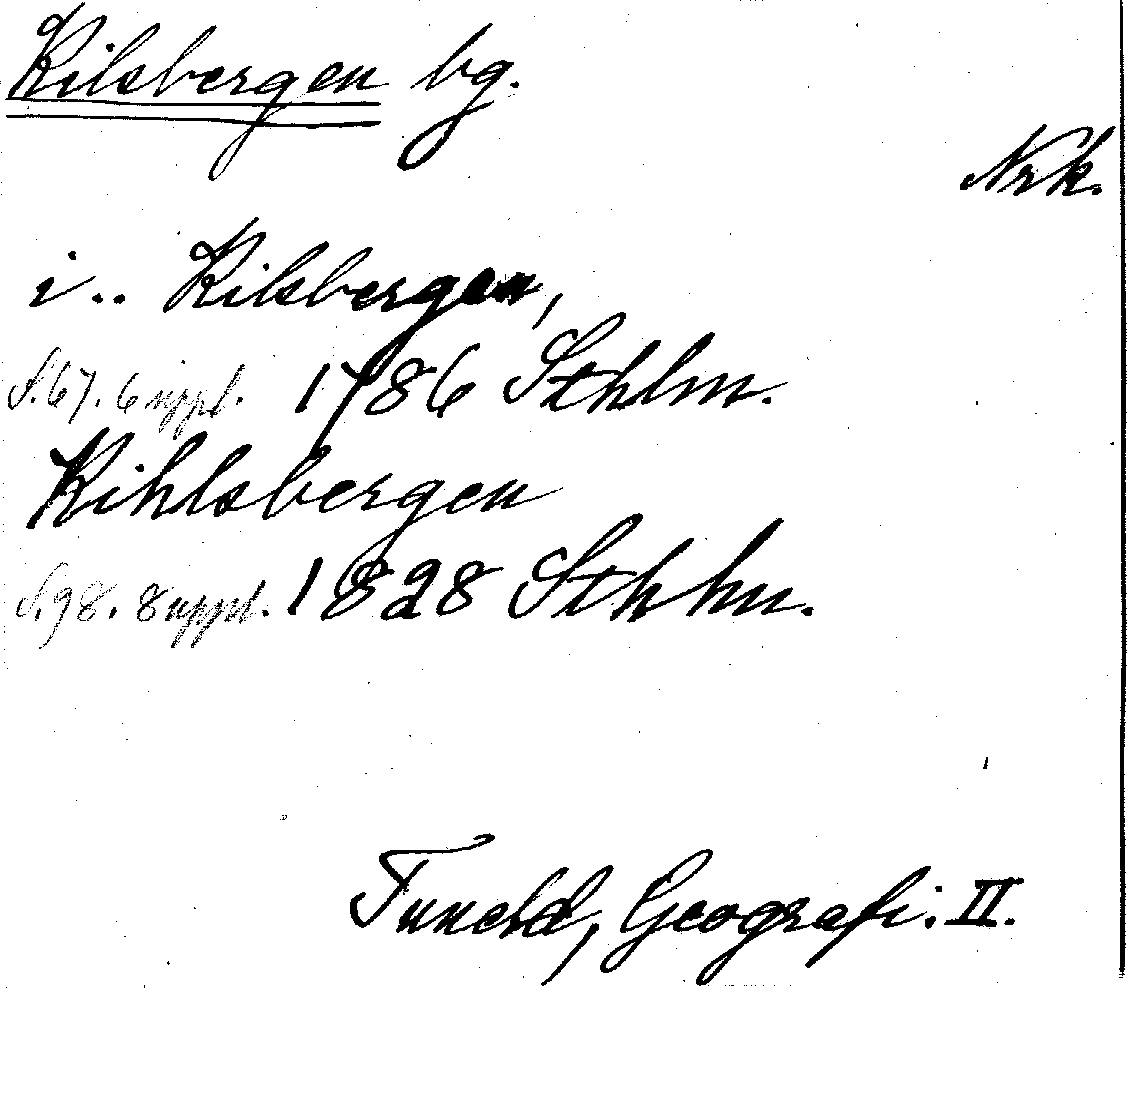 Kilsbergen bg.
Nrk.
i.. Kilsbergen,
S.67. 6 uppl. 1786 Sthlm.
Kihlsbergen
S.98. 8 uppl. 1828 Sthlm.
Tuneld, Geografi. II.